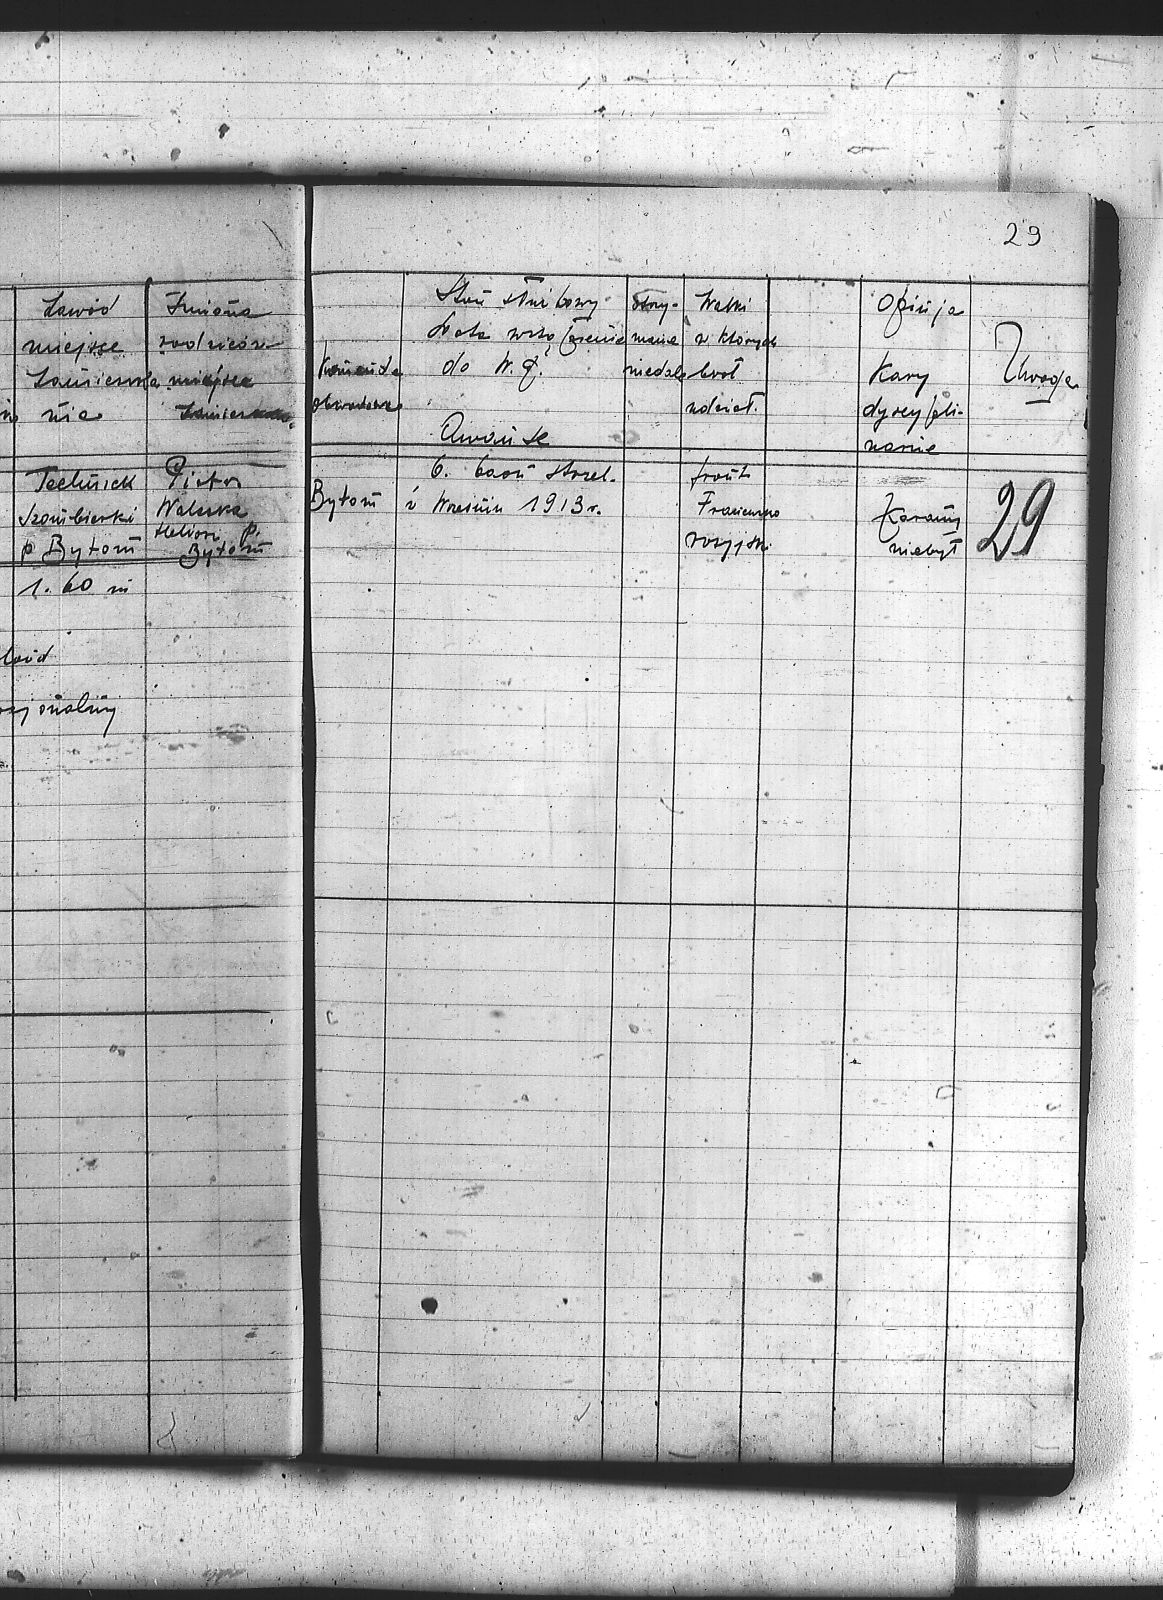 29
Zawód
miejsce
Zamieszka
nia
Imiona
rodziców
miejsce
Zamieszka.
Komenda
obwodowa
Stan służbowy
Data wstąpienia
do W. P.
Awanse
otrzy-
mane
medale
Walki
w których
brał
udział.
Opinja
Kary
dyscypli-
narne
Uwaga
Technick
Szombierki
p Bytom
1.60 m
Piotr
Waleska
p.
Bytom
Bytom
6. baon strzel.
i Wrzesień 1913 r.
front
Francusko
rosyjski
Karany
niebył
29
cjonalny